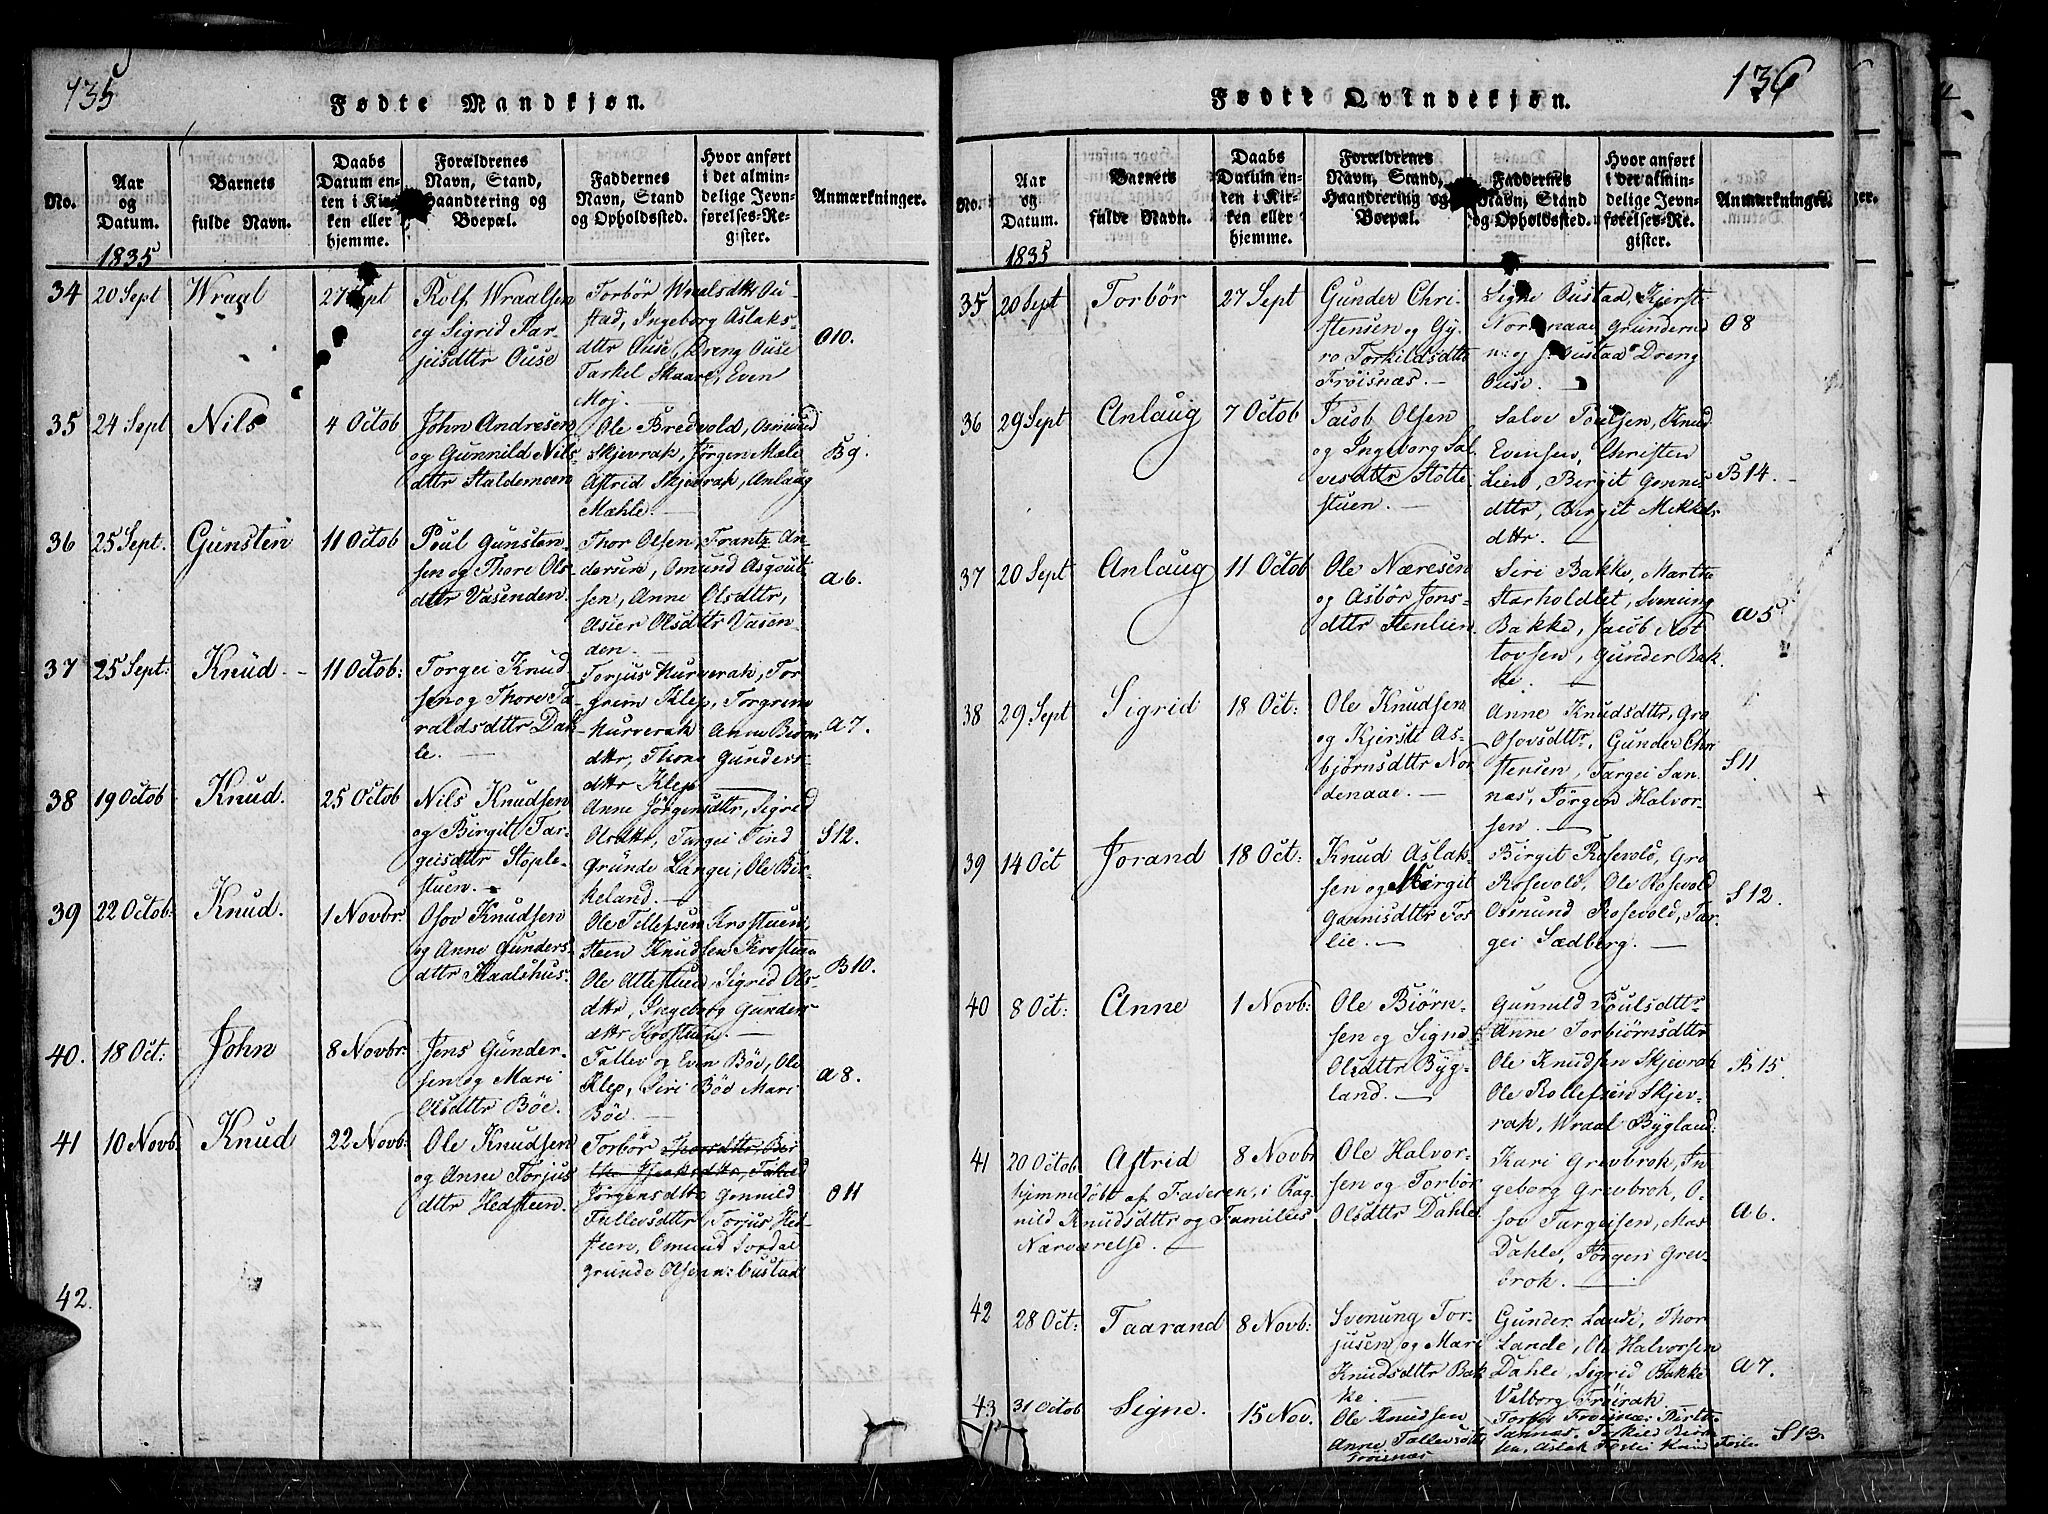 135
Fødte Mandkjøn.
No.
Aar
og
Datum.
Barnets
fulde Navn.
Daabs
Datum en-
ten i Kir-
ken eller
hjemme.
Forældrenes
Navn, Stand,
Haandtering og
Boepæl.
Faddernes
Navn, Stand
og Opholdssted.
Hvor anført
i det almin-
delige Jevn-
førelses-Re-
gister.
Anmærkninger.
1835
34
20 Sept
Wraal
27 Sept
Rolf Wraalsen
og Sigrid Tar-
jeisdttr Ouse
Torbør Wraalsdttr Ou-
stad, Ingeborg Aslaks-
dttr Ouse, Dreng Ouse
Tarkel Skaare, Even
Moj.
O10.
35
24 Sept
Nils
4 Octob
John Andresen
og Gunnild Nils-
dttr Staldemoen
Ole Bredvold, Osmund
Skjevrak, Jørgen Mæle
Astrid Skjevrak, Anlaug
Mæhle —
B9.
36
25 Sept.
Gunsten
11 Octob
Poul Gunsten-
sen og Thore Ols-
dttr Vasenden.
Thor Olsen, Frantz An-
dersen, Omund Asgout-
sen, Anne Olsdttr,
Asier Olsdttr Vasen-
den. —
a6.
37
25 Sept:
Knud —
11 Octob:
Torgei Knud
sen og Thore Ta-
raldsdttr Dah-
le. —
Torjus Hurverak, Tor-
grim Klep, Torgrim
Hurverak Anne Biørns
dttr, Thone Gunders-
dttr Klep
A7.
38
19 Octob
Knud.
25 Octob
Nils Knudsen
og Birgit Tar-
geisdttr Stople-
stuen. —
Anne Jørgensdttr, Sigrid
Olsdttr, Targei Tind
Grunde Langei, Ole Bir-
keland. —
S12.
39
22 Octob:
Knud.
1 Novbr
Osov Knudsen
og Anne Gunders-
dttr Kaalshus.
Ole Tellefsen Krostuen,
Steen Knudsen Krostuen
Ole Attestuen, Sigrid Ols-
dttr, Ingeborg Gunders
dttr Krostuen —
B10.
40.
18 Oct:
John
8 Novbr:
Jens Gunder-
sen og Mari
Olsdttr Bøe.
Tallev og Even Bøe, Ole
Klep, Siri Bøe Mari
Bøe. —
a8.
41
10 Novb:
Knud
22 Novb:
Ole Knudsen
og Anne Torjus
dttr Hedsteen.
Torbør Thorsdttr Ber
the Isaksdttr, Tarald
Jørgensdttr Gonnild
Tallevsdttr Torjus Hed-
steen, Omund Sordal
grunde Olsen:bustad
O11
42.
136
Fødte Qvindekjøn.
No.
Aar
og
Datum.
Barnets
fulde Navn.
Daabs
Datum en-
ten i Kir-
ken eller
hjemme.
Forældrenes
Navn, Stand,
Haandtering og
Boepæl.
Faddernes
Navn, Stand
og Opholdssted.
Hvor anført
i det almin-
delige Jevn-
førelses-Re-
gister.
Anmærkninger.
1835
35
20 Sept
Torbør
27 Sept
Gunder Chri-
stensen og Gy-
ro Torkildsdttr
Frøisnæs. —
Signe Oustad, Kjersti
Nordenaae, Grunder
Oustad Dreng
Ouse. —
O8
36
29 Sept
Anlaug
7 Octob
Jacob Olsen
og Ingeborg Sal-
vesdttr Støtte-
stuen. —
Salve Poulsen, Knud
Evensen, Christen
Lien, Birgit Gonnis
dttr, Birgit Mikkels
dttr. —
B14.
37
20 Sept
Anlaug
11 Octob
Ole Næresen
og Asbør Jons-
dttr Stenlien.
Seri Bakke, Marthe
Starholdtet, Svenung
Bakke, Jacob Not
tovsen, Gunder Bak
ke. —
a5
38
29 Sept
Sigrid
18 Oct:
Ole Knudsen
og Kjersti As-
bjørnsdttr Nor
denaae. —
Anne Knudsdttr, Gro
Osovsdttr, Gunder Chri
stensen, Targei San-
næs, Jørgen Halvor-
sen. —
S11.
39
14 Oct
Jorand
18 Oct:
Knud Aslak-
sen og Birgit
Gonnisdttr Fos-
lie. —
Birgit Rosevold, Gro
Rosevold, Ole Rosevold
Osmund Rosevold, Tar-
gei Sædberg. —
S12.
40
8 Oct:
Anne
1 Novb:
Ole Biørn-
sen og Signe
Olsdttr Byg-
land. —
Gunnild Poulsdttr
Anne Torbiørnsdttr
Ole Knudsen Skjevrak
Ole Rollefsen Skjev-
rak, Wraal Bygland.
B15.
41
20 Octob
Astrid
8 Novbr
hjemmedøbt af Faderen, i Rag-
nild Knudsdttr og Families
Nærværelse. —
Ole Halvor-
sen og Torbør
Olsdttr Dahle
Kari Grevbrok, In
geborg Grevbrok, O-
sov Targeisen, Mas
Dahle, Jørgen Grev-
brok. —
a6.
42
28 Oct:
Taarand
8 Novb:
Svenung Tor-
jusen og Mari
Knudsdttr Bak
ke.
Gunder Lande, Thor
Lande, Ole Halvorsen
Dahle, Sigrid Bakke
Valborg Frøirak
a7.
43
31 Octob
Signe.
15 Nov.
Ole Knudsen
Anne Tallevsdttr
Frøisnæs
Torbør Frøisnæs Berthe
Sannæs, Torkild Birke
sen, Aslak Foslie Knud Foslie
S13.